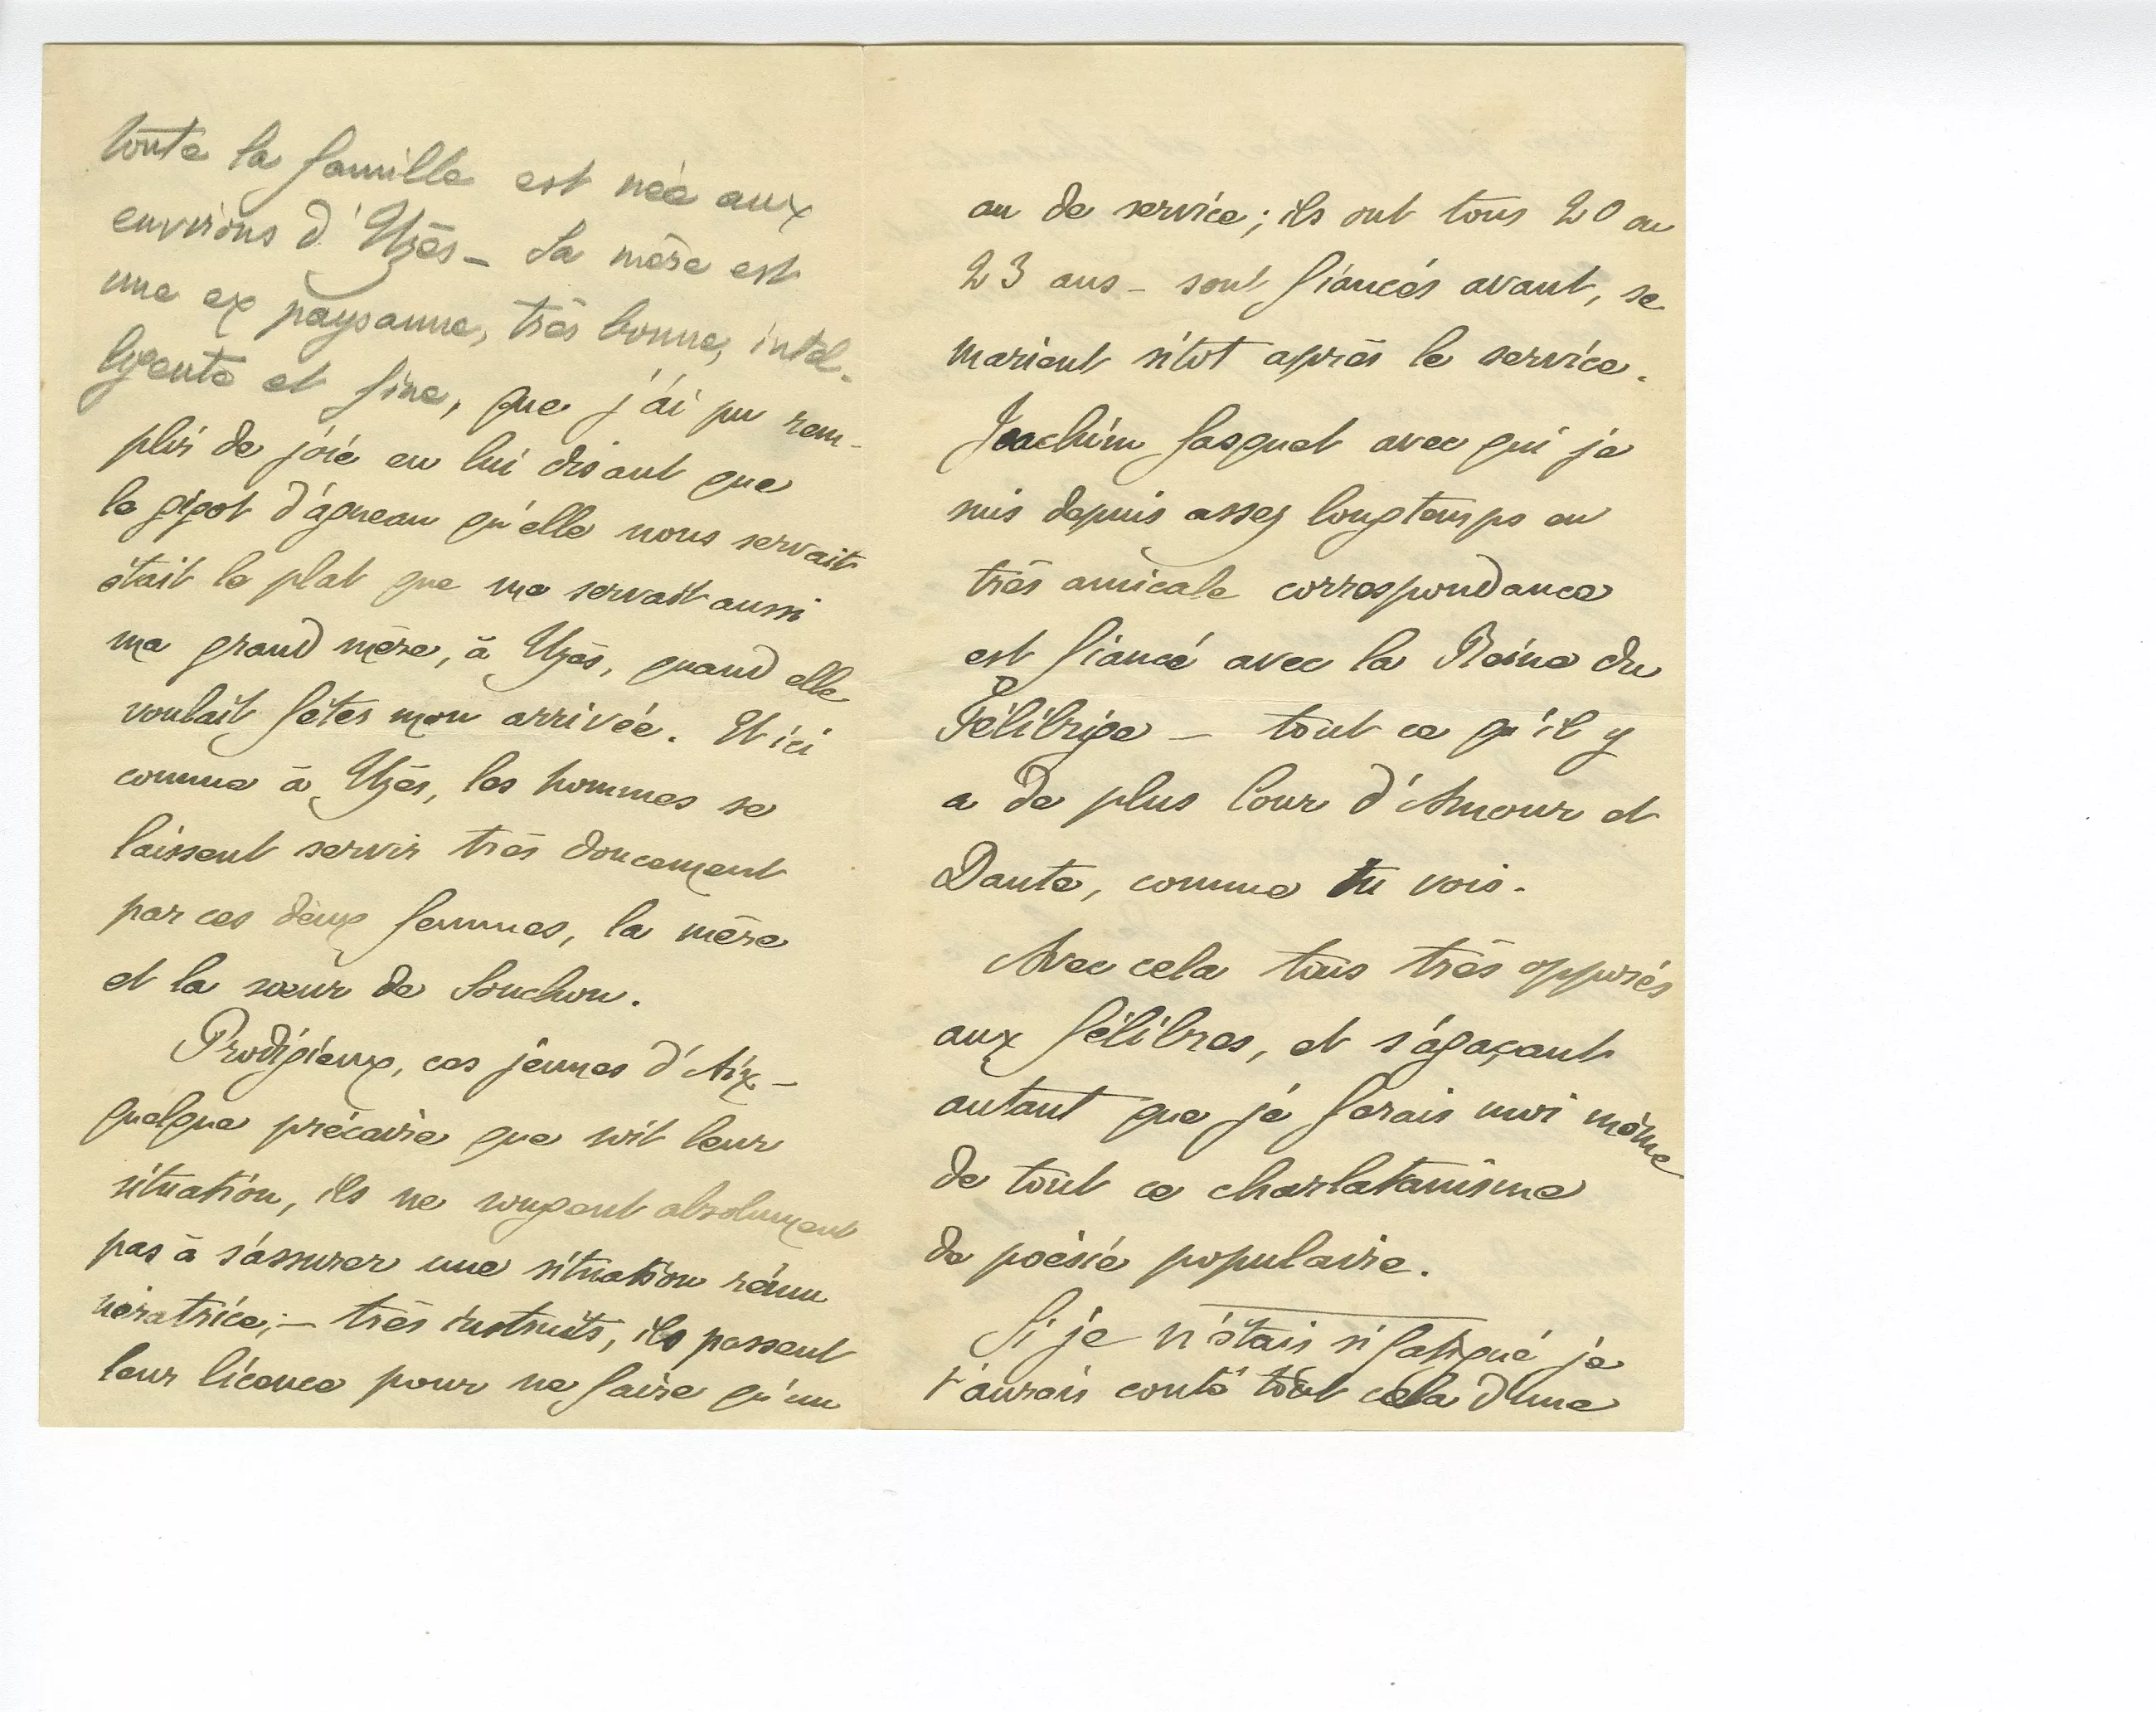 toute la famille est née aux
environs d'Uzès – La mère est
une ex paysanne, très bonne, intel-
ligente et fine, que j'ai pu rem-
plir de joie en lui disant que
le gigot d'agneau qu'elle nous servait
était le plat que me servait aussi
ma grand mère, à Uzès, quand elle
voulait fêter mon arrivée. Et ici
comme à Uzès, les hommes se
laissent servir très doucement
par ces deux femmes, la mère
et la sœur de Souchon.
Prodigieux, ces jeunes d'Aix –
quelque précaire que soit leur
situation, ils ne songent absolument
pas à s'assurer une situation rému
nératrice; – très instruits, ils passent
leur licence pour ne faire qu'un
an de service; ils ont tous 20 ou
23 ans – sont fiancés avant, se
marient sitot après le service.
Joachim Gasquet avec qui je
suis depuis assez longtemps en
très amicale correspondance
est fiancé avec la Reine du
Félibrige – tout ce qu'il y
a de plus Cour d'Amour et
Dante, comme tu vois.
Avec cela tous très opposés
aux félibres, et s'agaçant
autant que je ferais moi même
de tout ce charlatanisme
de poésie populaire.
Si je n'étais si fatigué je
t'aurais conté tout cela d'une